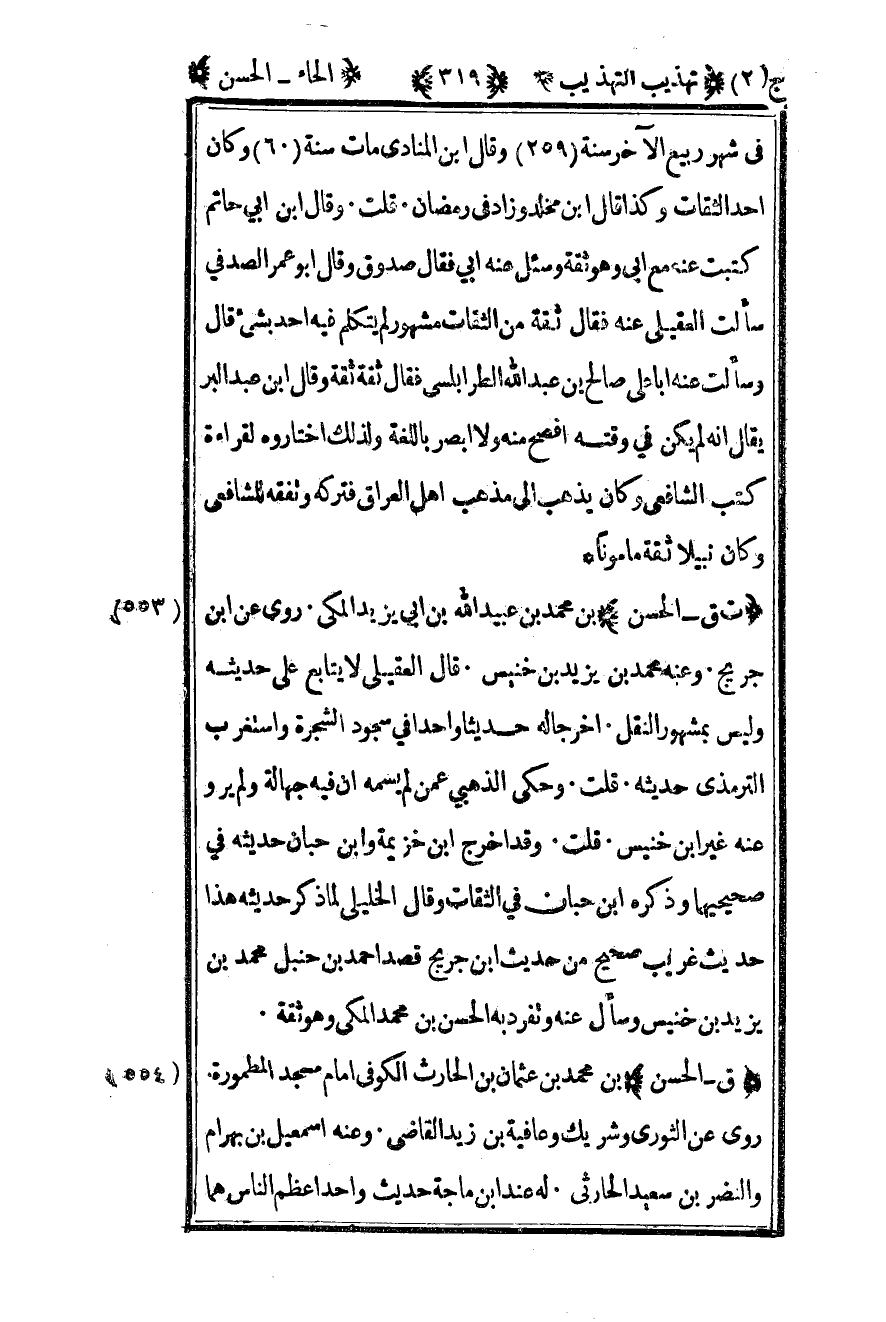 ج (٢) ﴿ تهذيب التهذيب ﴾ ﴿ ٣١٩ ﴾ ﴿ الحاء ـ الحسن ﴾
فى شهر ربيع الآخر سنة (٢٥٩) وقال ابن المنادى مات سنة (٦٠) وكان
احد الثقات وكذا قال ابن مخلد وزاد فى رمضان ٠ قلت ٠ وقال ابن ابي حاتم
كتبت عنه مع ابى وهو ثقة وسئل عنه ابي فقال صدوق وقال ابو عمر الصدفي
سألت العقيلى عنه فقال ثقة من الثقات مشهور لم يتكلم فيه احد بشئ قال
وسألت عنه اباعلى صالح بن عبد الله الطرابلسى فقال ثقة ثقة وقال ابن عبد البر
يقال انه لم يكن في وقته افصح منه ولا ابصر باللغة ولذلك اختاروه لقراءة
كتب الشافعى وكان يذهب الى مذهب اهل العراق فتركه وتفقه للشافعى
وكان نبيلا ثقة مامونا *
﴿ ت ق ـ الحسن ﴾ بن محمد بن عبيد الله بن ابي يزيد المكى ٠ روى عن ابن (٥٥٣)
جريج ٠ وعنه محمد بن يزيد بن خنيس ٠ قال العقيلى لا يتابع على حديثه
وليس بمشهور النقل ٠ اخرجاله حديثا واحدا في سجود الشجرة واستغرب
الترمذى حديثه ٠ قلت ٠ وحكى الذهبي عمن لم يسمه ان فيه جهالة ولم يرو
عنه غير ابن خنيس ٠ قلت ٠ وقد اخرج ابن خزيمة وابن حبان حديثه في
صحيحيهما وذكره ابن حبان في الثقات وقال الخليلى لما ذكر حديثه هذا
حديث غريب صحيح من حديث ابن جريج قصد احمد بن حنبل محمد بن
يزيد بن خنيس وسأل عنه وتفرد به الحسن بن محمد المكى وهو ثقة ٠
﴿ ق ـ الحسن ﴾ بن محمد بن عثمان بن الحارث الكوفى امام مسجد المطمورة. (٥٥٤)
روى عن الثورى وشريك وعافية بن زيد القاضى ٠ وعنه اسمعيل بن بهرام
والنضر بن سعيد الحارثى ٠ له عند ابن ماجة حديث واحد اعظم الناس هما